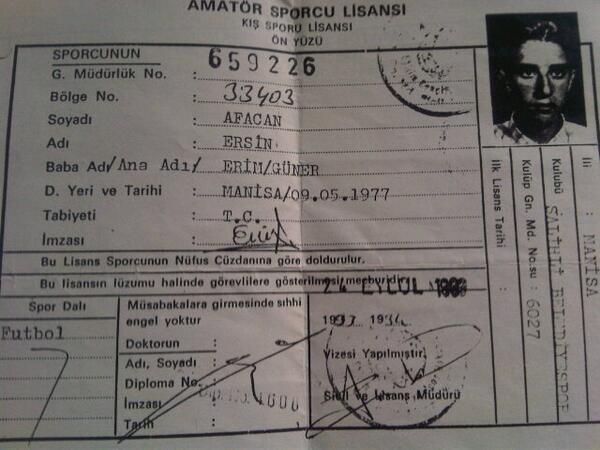 AMATÖR SPORCU LİSANSI
KIŞ SPORU LİSANSI
ÖN YÜZÜ
SPORCUNUN
G. Müdürlük No. : 659226
Bölge No. : 33403
Soyadı : AFACAN
Adı : ERSİN
Baba Adı/Ana Adı/ : ERİM/GÜNER
D. Yeri ve Tarihi : MANİSA/09.05.1977
Tabiyeti : T.C.
İmzası :
Bu Lisans Sporcunun Nüfus Cüzdanına göre doldurulur.
Bu lisansın lüzumu halinde görevlilere gösterilmesi mecburidir.
EYLÜL
Spor Dalı
Futbol
Müsabakalara girmesinde sıhhi
engel yoktur
Doktorun :
Adı, Soyadı :
Diploma No. :
İmzası :
Tarih :
Vizesi Yapılmıştır.
Sicil ve Lisans Müdürü
İli : MANİSA
Kulübü : SALİHLİ BELEDİYESPOR
Kulüp Gn. Md. No.su : 6027
İlk Lisans Tarihi :